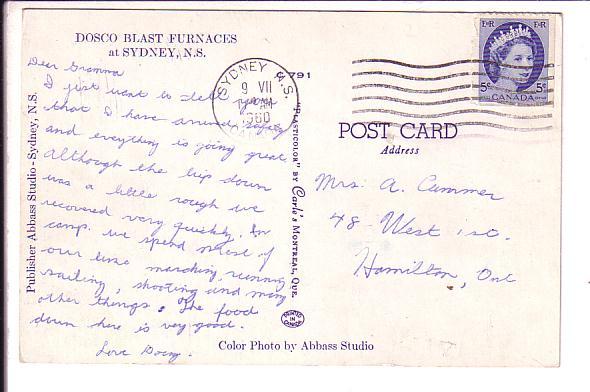 DOSCO BLAST FURNACES
at SYDNEY, N.S.
Dear Gramma
I just want to tell you
that I have arrived safely
and everything is going great.
Although the trip down
was a little rough we
recovered very quickly. In
camp we spend most of
our time marching, running
sailing, shooting and many
other things. The food
down here is very good.
Love
Publisher Abbass Studio - Sydney, N.S.
C.791
SYDNEY N.S.
9 VII
1960
"PLASTICOLOR" BY Carle's MONTREAL, QUE.
PRINTED IN CANADA
E II R E II R
5c 5c
CANADA
POST CARD
Address
Mrs. A. Cummer
48 West
Hamilton, Ont
Color Photo by Abbass Studio